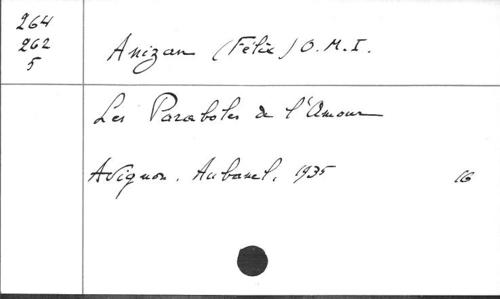 264
262
5
Anizan (Félix) O.M.I.
Les Paraboles de l'Amour
Avignon. Aubanel, 1935 16